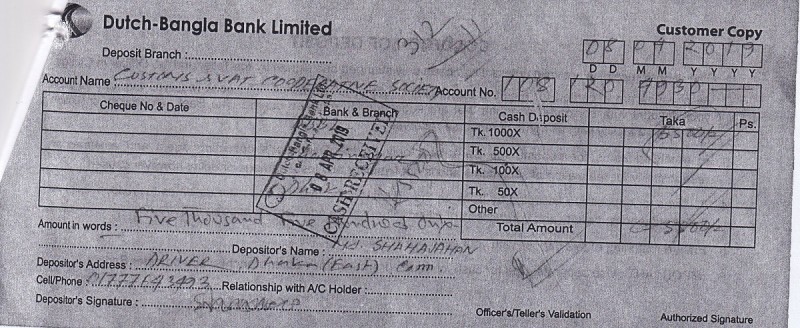 Dutch-Bangla Bank Limited
Customer Copy
Deposit Branch :
08 04 2019
D D M M Y Y Y Y
Account Name : Customs & VAT Cooperative Society Account No. 108 120
Cheque No & Date Bank & Branch Cash Deposit Taka Ps.
Tk. 1000X 5500/-
Tk. 500X
Tk. 100X
Tk. 50X
Other
Total Amount 5500/-
08 APR 2019
CASH RECEIVED
Amount in words : Five Thousand Five Hundred Only
Depositor's Name : Md. SHAHAJAHAN
Depositor's Address : DRIVER Dhaka (East) Comm.
Cell/Phone : 01777143493 Relationship with A/C Holder :
Depositor's Signature :
Officer's/Teller's Validation
Authorized Signature